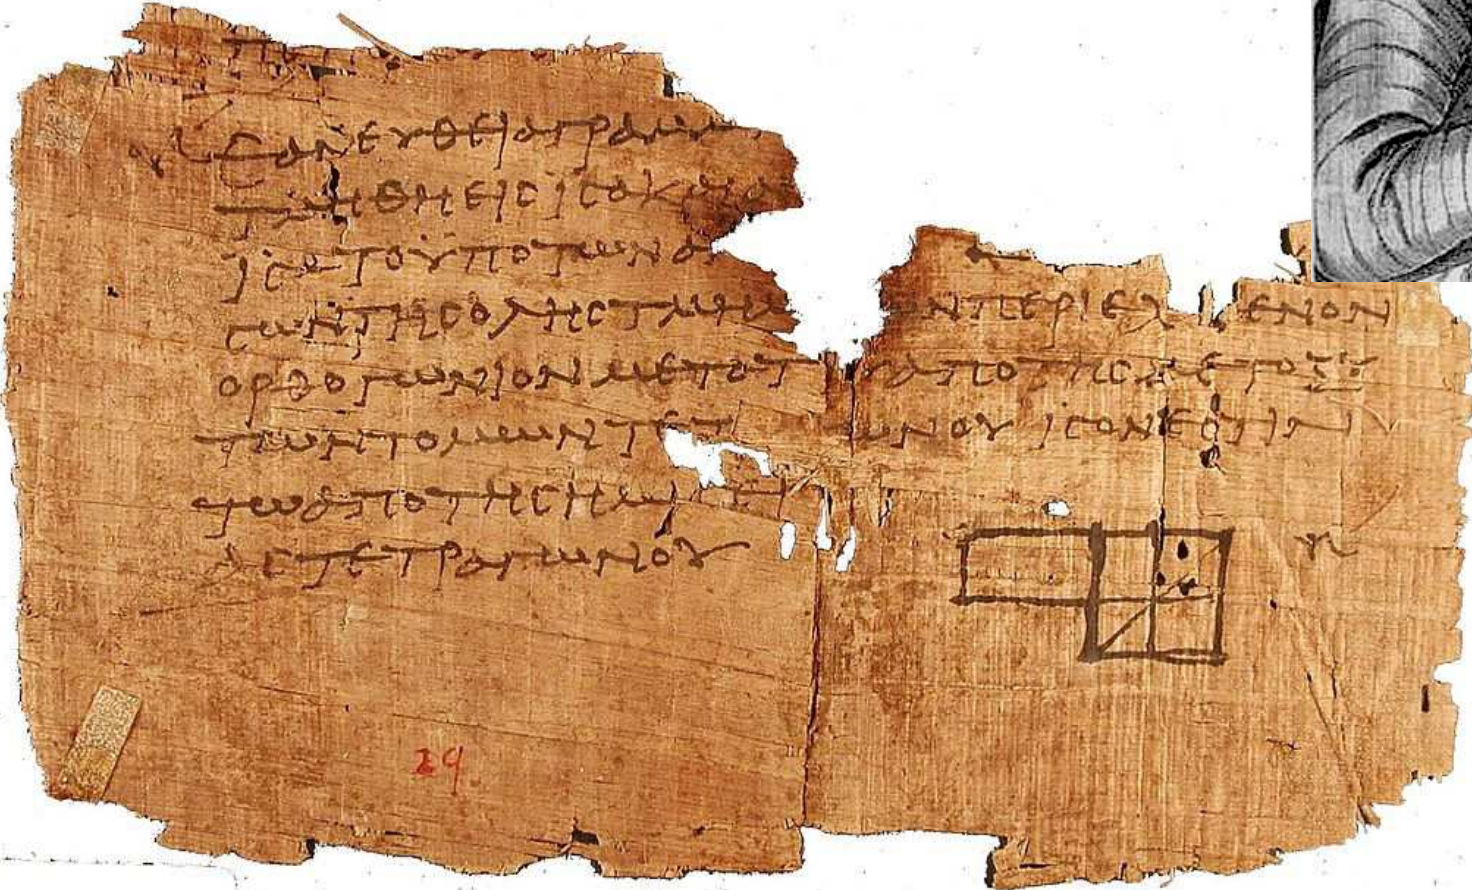 ΕΑΝΕΥΘΕΙΑΓΡΑΜΜ
ΤΜΗΘΗΕΙϹΙϹΑΚΑΙΑ
ΙϹΑΤΟΫΠΟΤΩΝΑ
ϹΩΝΤΗϹΟΛΗϹΤΜΗΜ ΩΝΠΕΡΙΕΧ ΕΝΟΝ
ΟΡΘΟΓΩΝΙΟΝΜΕΤΑΤ ΑΠΟΤΗϹΜΕΤΟΞΥ
ΤΩΝΤΟΜΩΝΤΕΤ ΩΝΟΥΙϹΟΝΕϹΤΙΝ
ΤΩΑΠΟΤΗϹΗΜΙϹΕΙ
ΑϹΤΕΤΡΑΓΩΝΟΥ
29